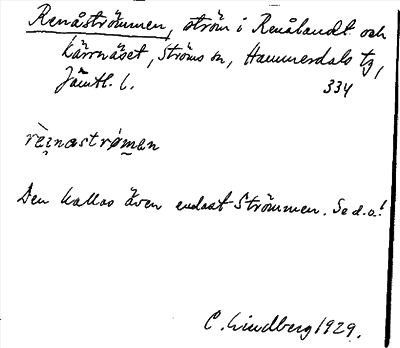 Renåströmmen, ström i Renålandet och
Kärrnäset, Ströms sn, Hammerdals tg,
Jämtl. l. 334
rèi̯nastrømen
Den kallas även endast Strömmen. Se d.o.!
C. Lindberg 1929.